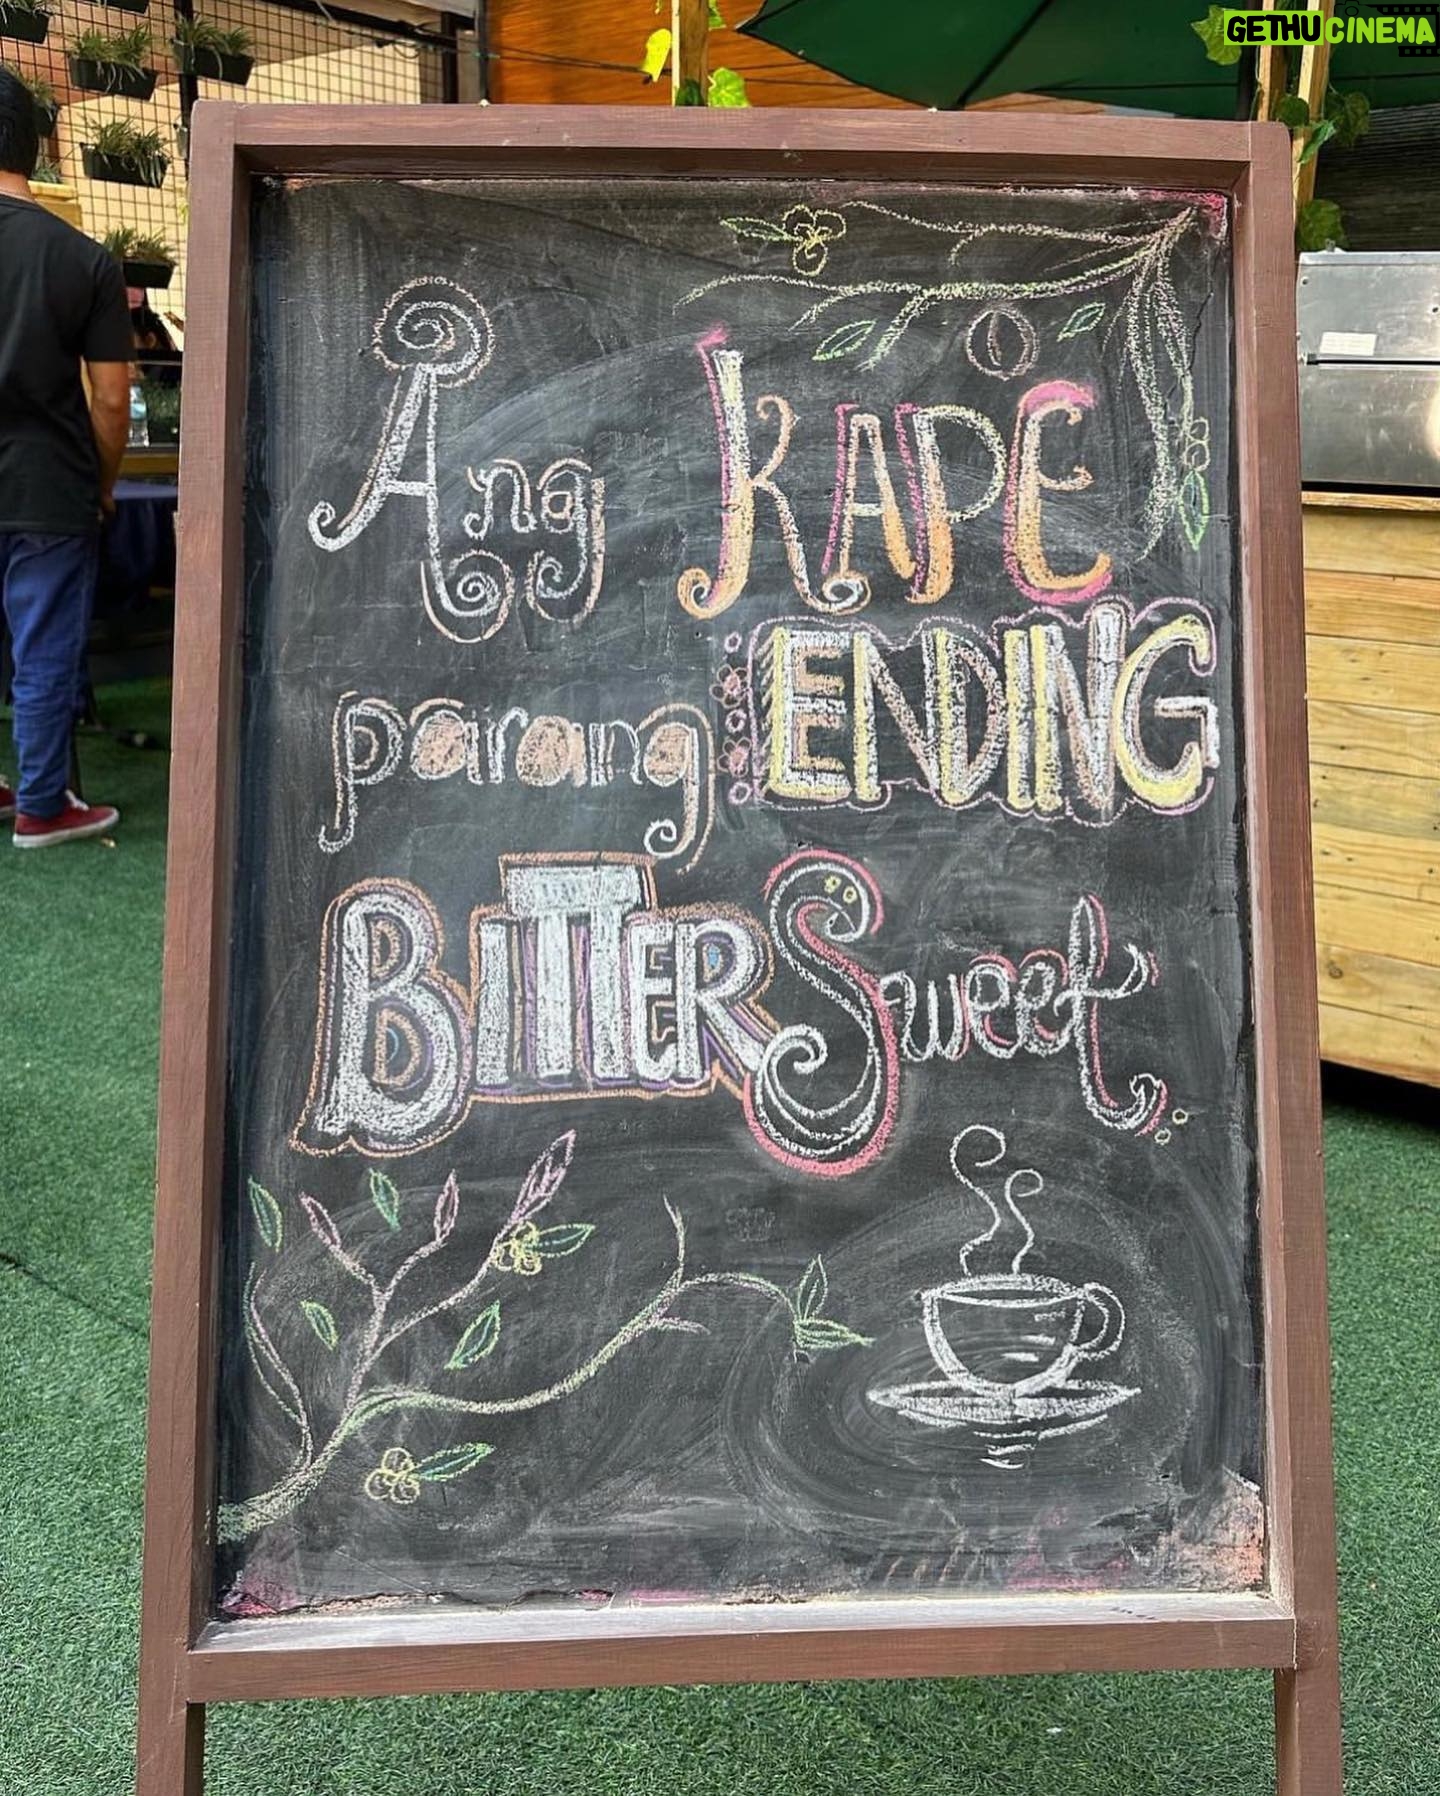 GETHUCINEMA
Ang KAPE
parang ENDING
BITTERSweet